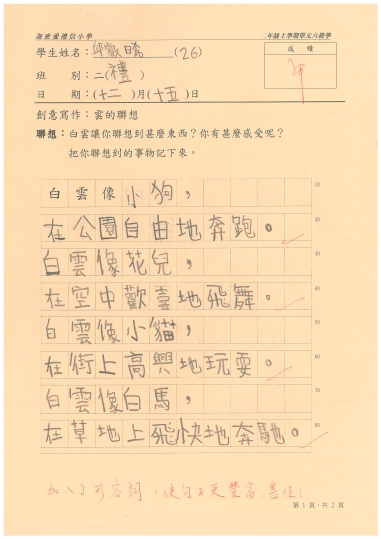 禮信小學
二年級上學期單元六教學
學生姓名：(26)
成績
班別：二(禮)
日期：(十二)月(十五)日
創意寫作：雲的聯想
聯想：白雲讓你聯想到甚麼東西？你有甚麼感受呢？
把你聯想到的事物記下來。
白雲像小狗，
10
在公園自由地奔跑。
20
白雲像花兒，
30
在空中歡喜地飛舞。
40
白雲像小貓，
50
在街上高興地玩耍。
60
白雲像白馬，
70
在草地上飛快地奔馳。
80
加入了形容詞，使句子更豐富，甚佳！
第1頁，共2頁